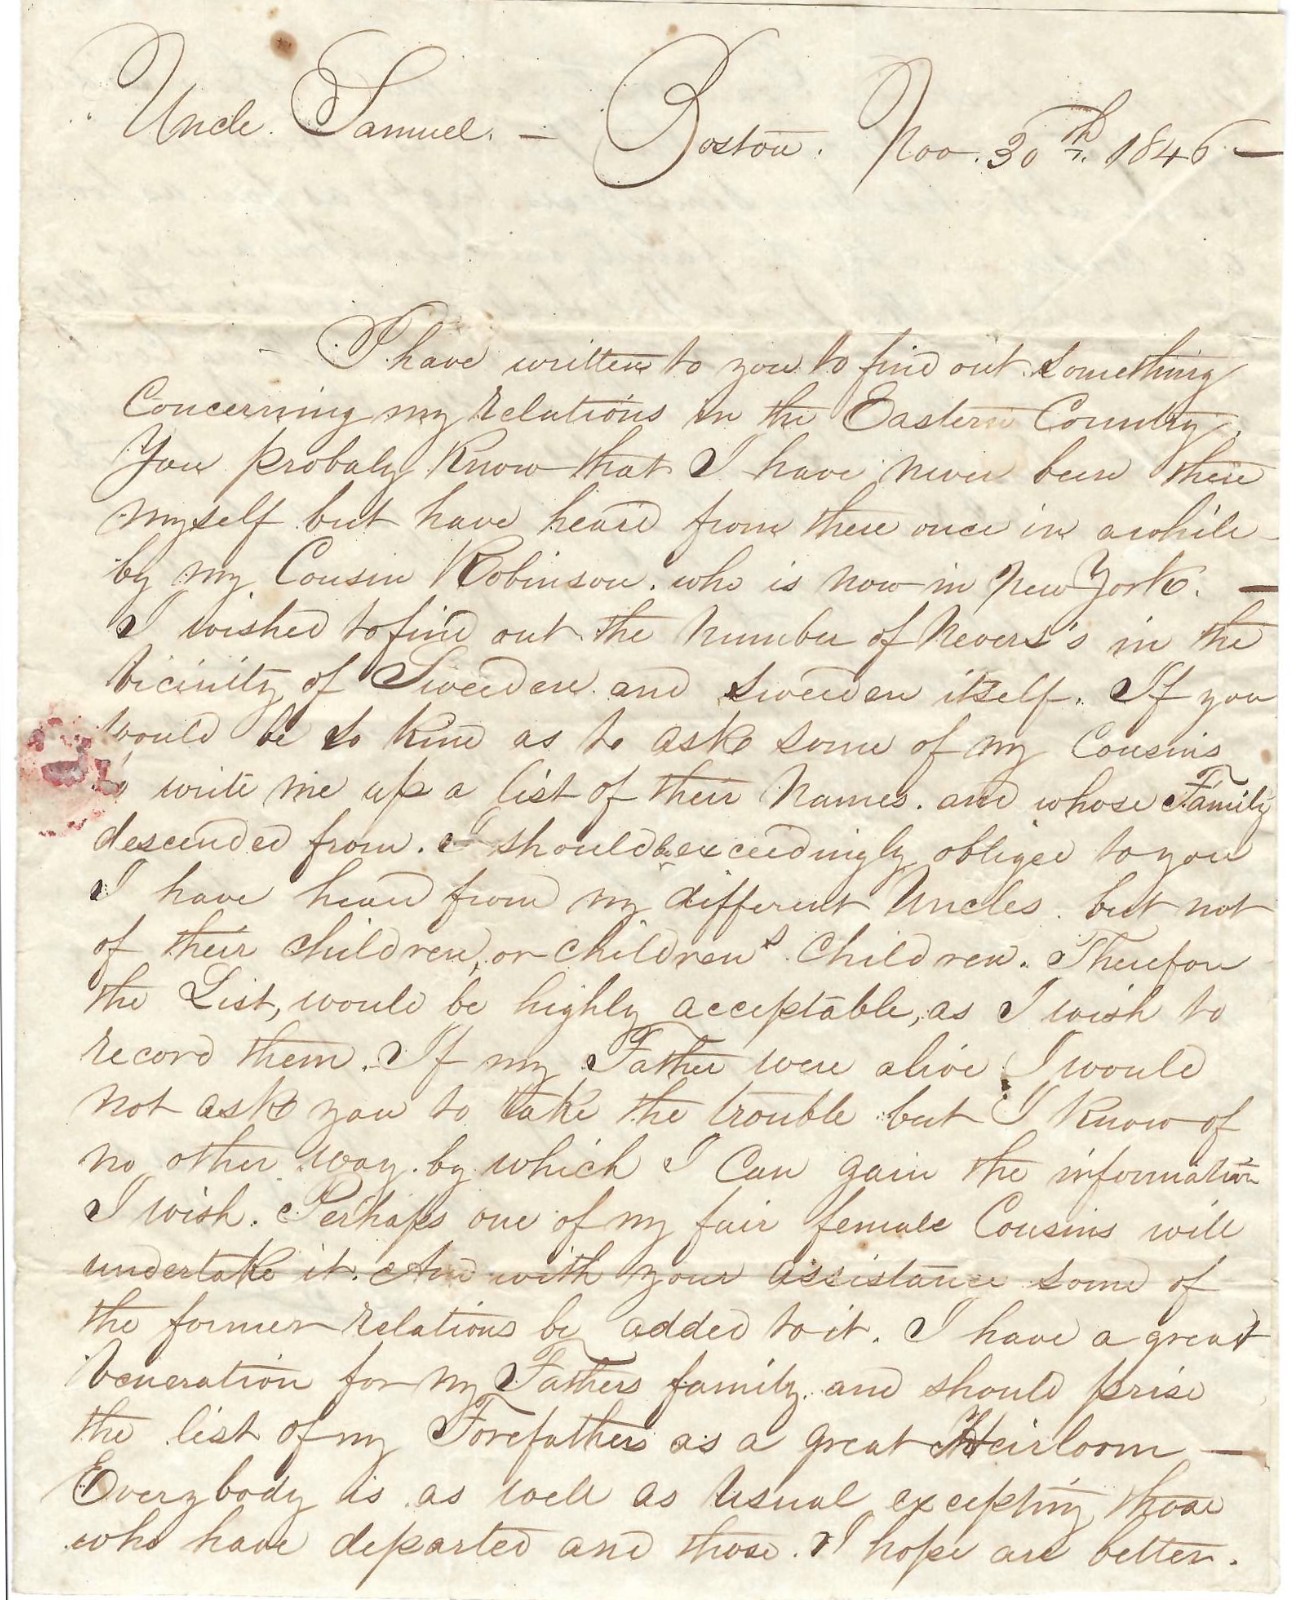 Uncle. Samuel. — Boston. Nov. 30th. 1846 —
I have written to you to find out something
Concerning my relations in the Eastern Country.
You probaly Know that I have never been there
myself but have heard from there once in awhile
by my Cousin Robinson. who is now in New York. —
I wished to find out the Number of Nevers's in the
Vicinity of Sweeden and Sweeden itself. If you
would be so kind as to ask some of my Cousins
to write me up a list of their Names. and whose Family
descended from. I should be exceedingly obliged to you
I have heard from my different Uncles. but not
of their children, or children's Children. Therefore
the List, would be highly acceptable, as I wish to
record them. If my Father were alive I would
not ask you to take the trouble but I know of
no other way. by which I Can gain the information
I wish. Perhaps one of my fair female Cousins will
undertake it. And with your assistance some of
the former relations be added to it. I have a great
Veneration for my Fathers family. and should prise
the list of my Forefathers as a great Heirloom —
Everybody is as well as Usual excepting those
who have departed and those. I hope are better.